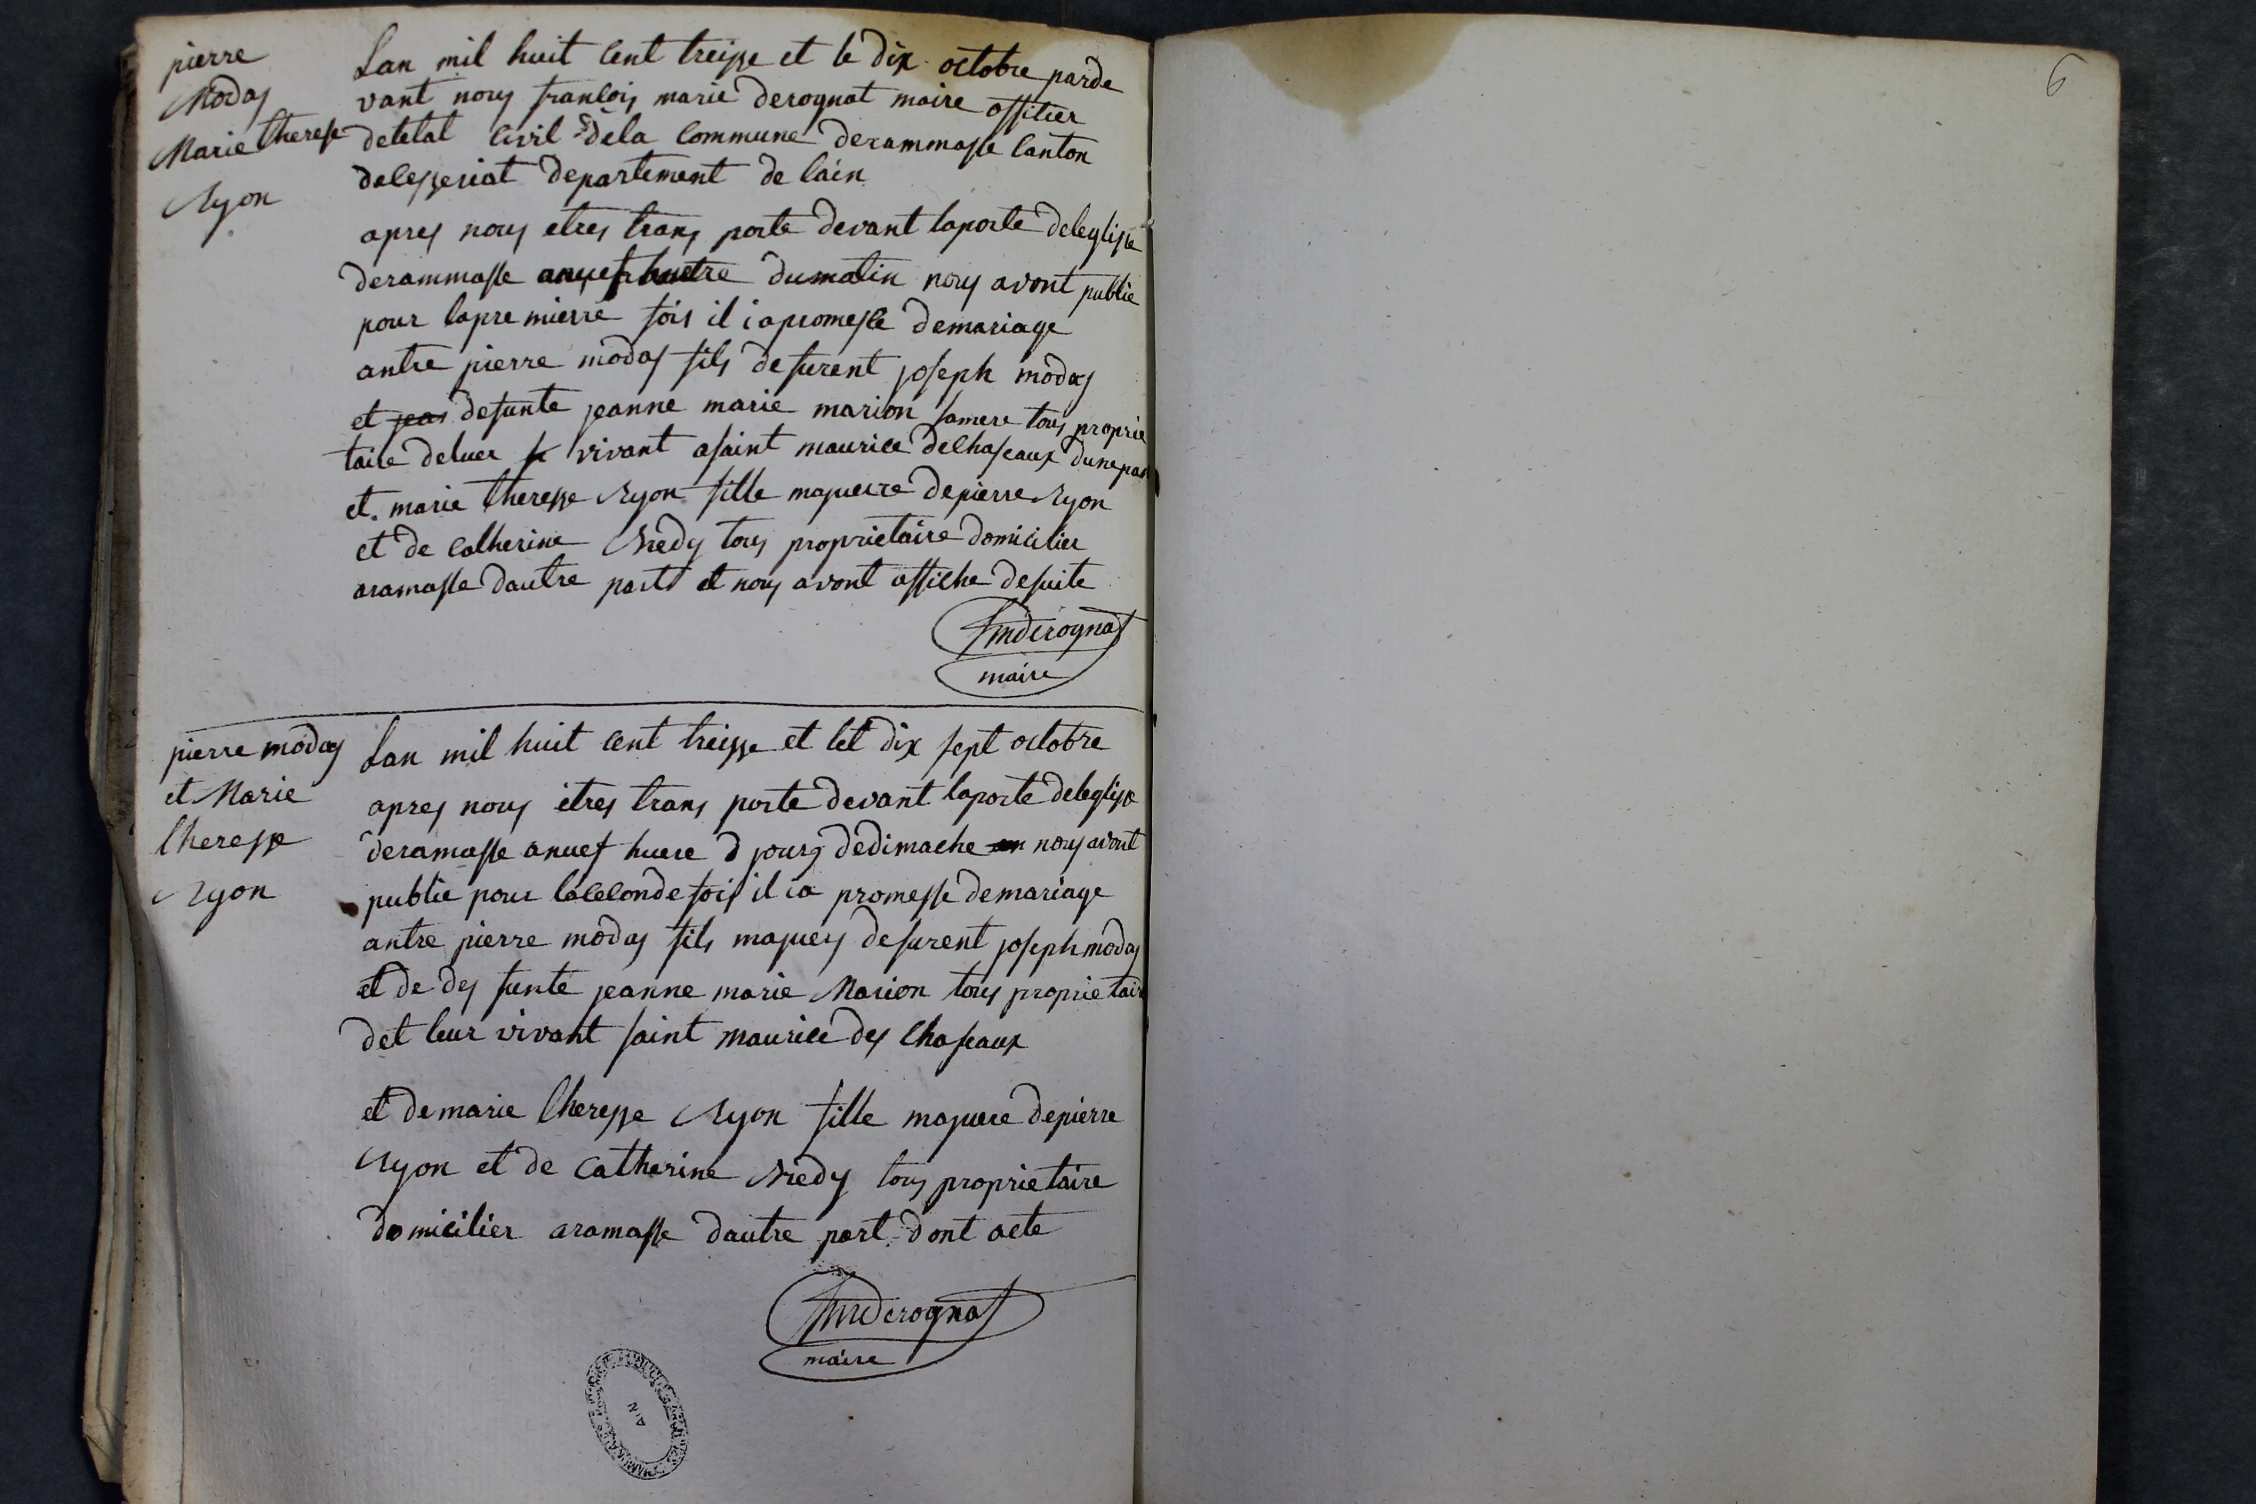 pierre
modas
Marie therese
Ryon
Lan mil huit Cent treisse et le dix octobre parde
vant nous francois marie derognat maire offitier
detetat Civil dela Commune derammasse Canton
de departement de lain
apres nous etres trans porte devant laporte deleglisse
derammasse anuef huere dumatin nous avont publie
pour lapre mierre fois il ia promesse demariage
antre pierre modas fils defurent joseph modas
et jean defunte jeanne marie marion samere tous proprie
taire deluer vivant asaint maurice dechaseaux dunepar
et marie theresse Ryon fille majueure depierre Ryon
et de Catherine tous proprietaire domicilier
aramasse dautre part et nous avont affiche desuite
fmderognat
maire
pierre modas
et Marie
theresse
Ryon
Lan mil huit Cent treisse et let dix sept octobre
apres nous etres trans porte devant laporte deleglisse
deramasse anuef huere d jours dedimache nous avont
publie pour laceconde fois il ia promesse demariage
antre pierre modas fils majuers defurent joseph modas
et de des funte jeanne marie Marion tous proprietair
det leur vivant saint maurice des Chaseaux
et demarie theresse Ryon fille majuere depierre
Ryon et de Catherine tous proprietaire
domicilier aramasse dautre part dont acte
fmderognat
maire
AIN
6